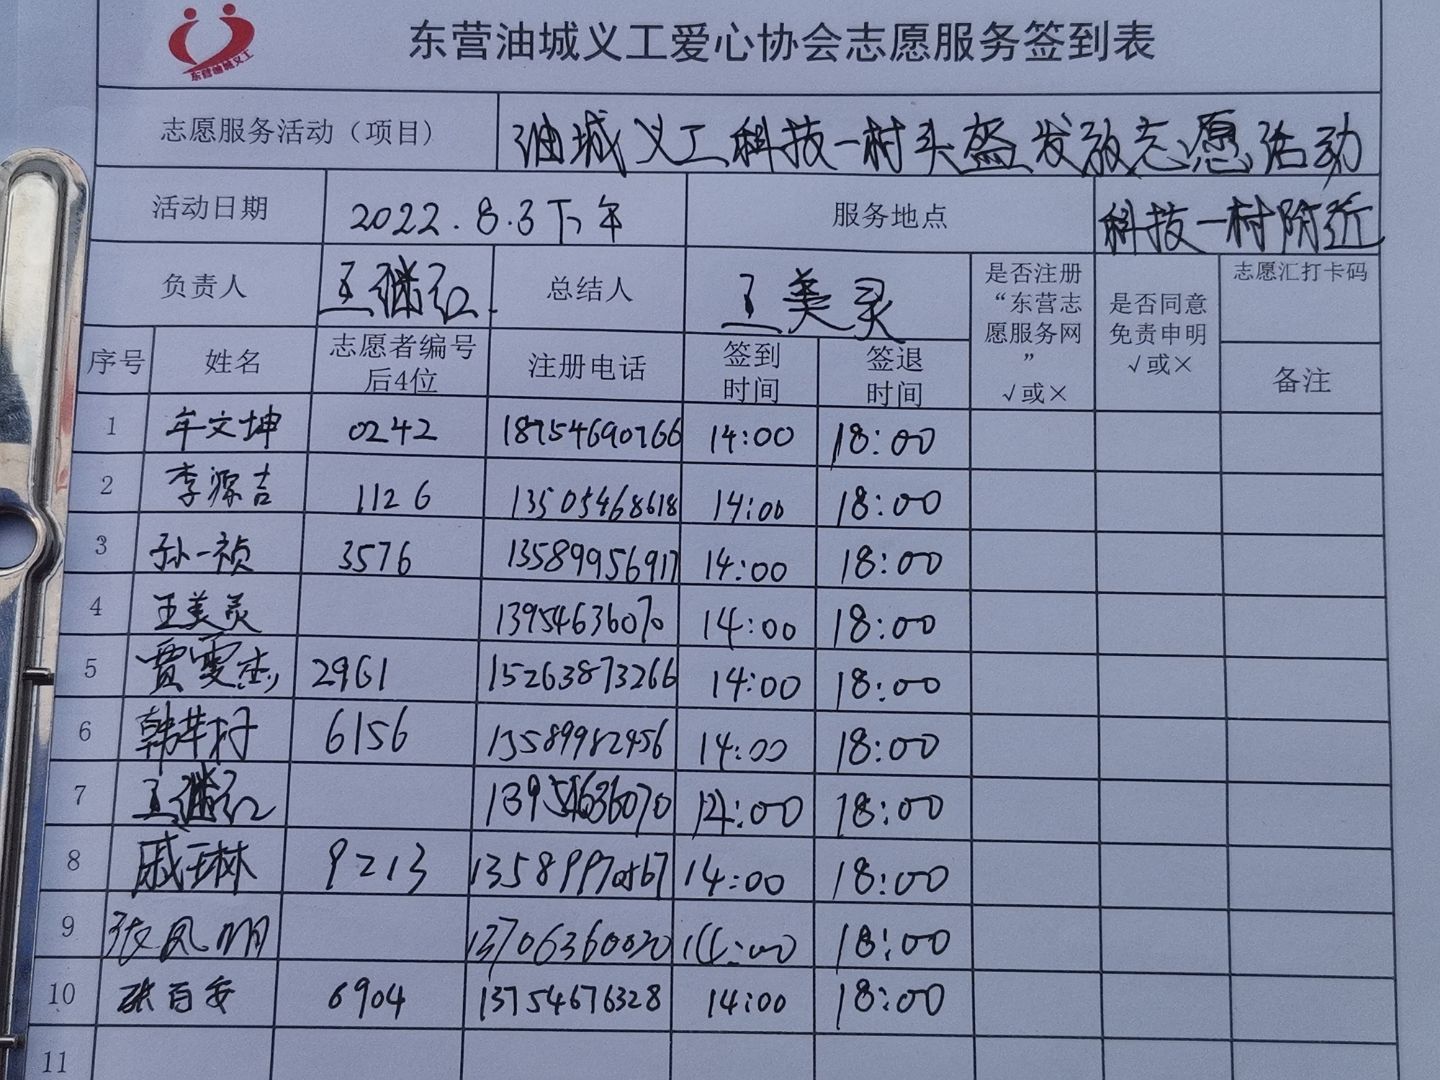 东营油城义工
东营油城义工爱心协会志愿服务签到表
志愿服务活动（项目） 油城义工科技一村头盔发放志愿活动
活动日期 2022.8.3下午 服务地点 科技一村附近
负责人 王继红 总结人 王美灵 是否注册“东营志愿服务网” √或× 是否同意免责申明 √或× 志愿汇打卡码
序号 姓名 志愿者编号后4位 注册电话 签到时间 签退时间 备注
1 牟文坤 0242 18754690766 14:00 18:00
2 李源吉 1126 13505468618 14:00 18:00
3 孙一祯 3576 13589956917 14:00 18:00
4 王美灵 13954636070 14:00 18:00
5 贾雯杰 2961 15263873266 14:00 18:00
6 韩芊籽 6156 13589982456 14:00 18:00
7 王继红 13954636070 14:00 18:00
8 戚玉琳 9213 13589970567 14:00 18:00
9 张凤明 13706360020 14:00 18:00
10 张百安 6904 13754676328 14:00 18:00
11